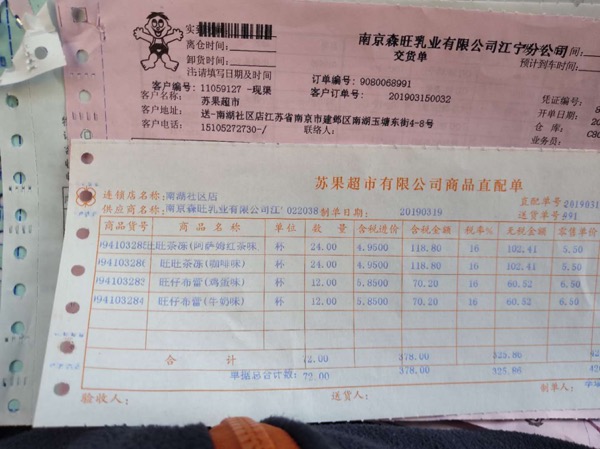 南京森旺乳业有限公司江宁分公司
交货单
离仓时间:
卸货时间:
注:请填写日期及时间
预计到车时间:
客户编号: 11059127 -现渠
订单编号: 9080068991
客户名称: 苏果超市
交货单号: 201903150032
凭证编号:
客户地址: 送-南湖社区店江苏省南京市建邺区南湖玉塘东街4-8号
开单日期: 20
客户电话: 15105272730-/
联络人:
仓 库:
业务员:
苏果超市有限公司商品直配单
连锁店名称:南湖社区店
直配单号:201903
供应商名称:南京森旺乳业有限公司江 022038 制单日期: 20190319
送货单号:691
商品货号 商品名称 单位 数 量 含税进价 含税金额 税率% 无税金额 零售单价
旺旺茶冻(阿萨姆红茶味 杯 24.00 4.9500 118.80 16 102.41 5.50
旺旺茶冻(咖啡味) 杯 24.00 4.9500 118.80 16 102.41 5.50
旺仔布雷(鸡蛋味) 杯 12.00 5.8500 70.20 16 60.52 6.50
旺仔布雷(牛奶味) 杯 12.00 5.8500 70.20 16 60.52 6.50
合 计 72.00 378.00 325.86
单据总合计数: 72.00 378.00 325.86
验收人:
送货人:
制单人: